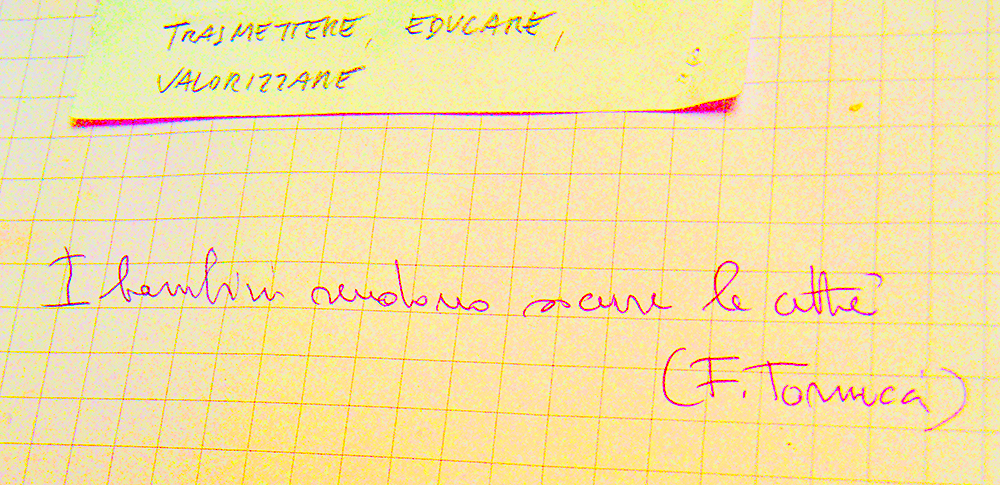 TRASMETTERE, EDUCARE,
VALORIZZARE
I bambini rendono sicure le città
(F. Tonucci)